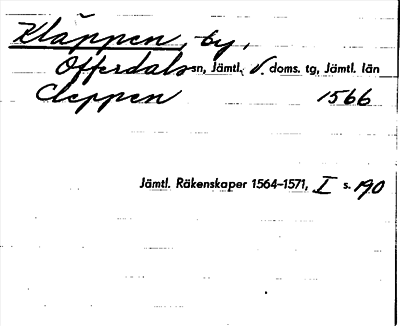 Kläppen, by,
Offerdals sn, Jämtl. V. doms. tg, Jämtl. län
Cleppen 1566
Jämtl. Räkenskaper 1564-1571, I s. 190